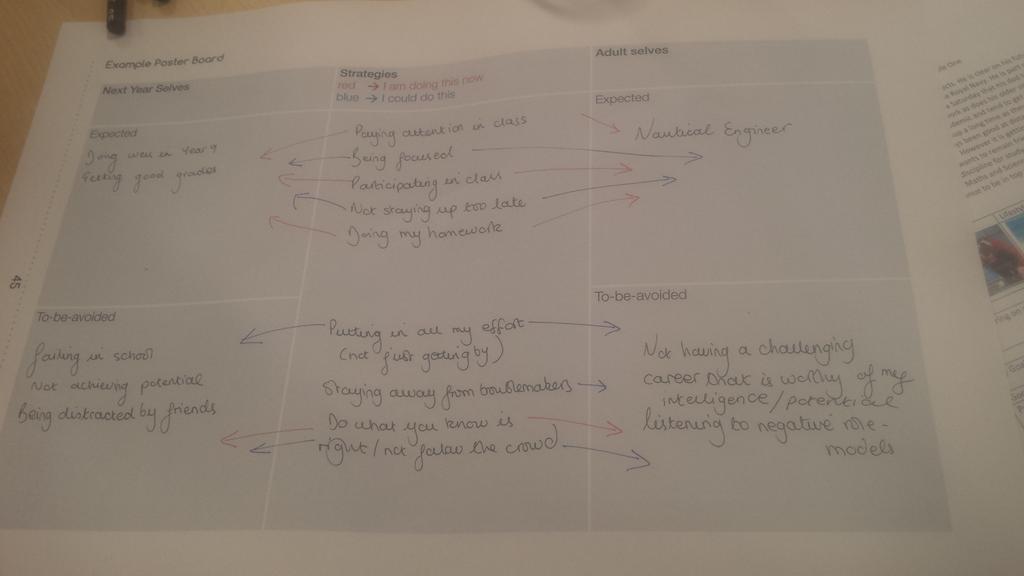 Example Poster Board
Next Year Selves
Strategies
red → I am doing this now
blue → I could do this
Adult selves
Expected
Doing well in Year 9
Getting good grades
Paying attention in class
Being focused
Participating in class
Not staying up too late
Doing my homework
Expected
Nautical Engineer
45
To-be-avoided
failing in school
Not achieving potential
Being distracted by friends
Putting in all my effort
(not just getting by)
Staying away from troublemakers
Do what you know is
right/not follow the crowd
To-be-avoided
Not having a challenging
career that is worthy of my
intelligence/potential
listening to negative role-
models